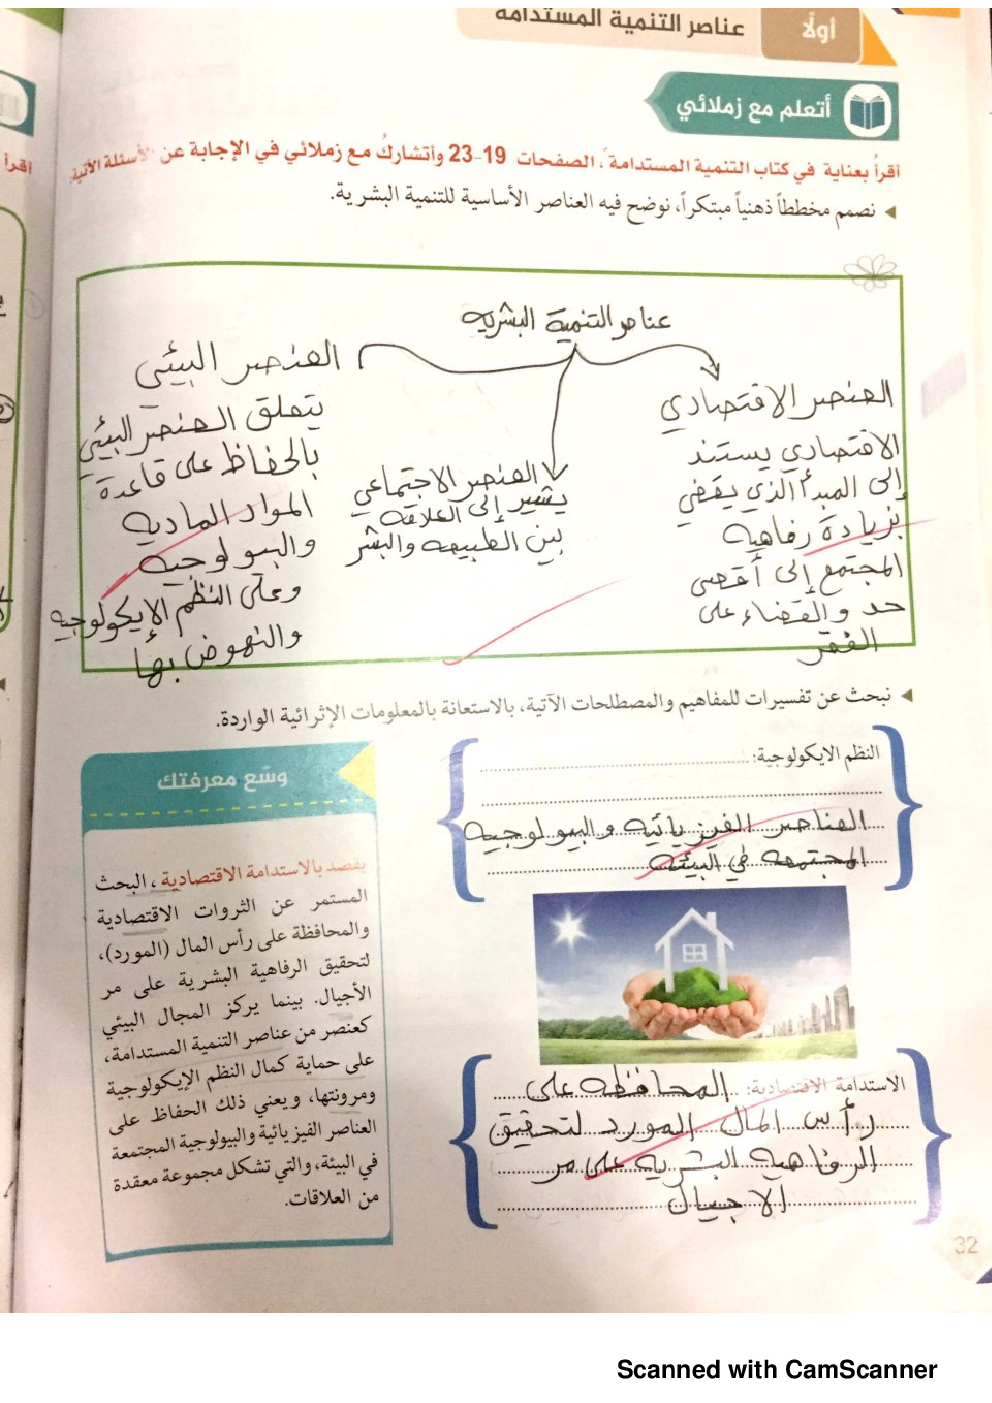 أولًا
عناصر التنمية المستدامة
أتعلم مع زملائي
أقرأ بعناية في كتاب التنمية المستدامة، الصفحات 19-23 وأتشارك مع زملائي في الإجابة عن الأسئلة الآتية:
نصمم مخططاً ذهنياً مبتكراً، نوضح فيه العناصر الأساسية للتنمية البشرية.
عناصر التنمية البشريه
العنصر الاقتصادي
الاقتصادي يستند
إلى المبدأ الذي يقضي
بزيادة رفاهية
المجتمع إلى أقصى
حد والقضاء على
الفقر
العنصر الاجتماعي
يشير إلى العلاقه
بين الطبيعه والبشر
العنصر البيئي
يتعلق العنصر البيئي
بالحفاظ على قاعدة
المواد الماديه
والبيولوجيه
وعلى النظم الإيكولوجيه
والنهوض بها
نبحث عن تفسيرات للمفاهيم والمصطلحات الآتية، بالاستعانة بالمعلومات الإثرائية الواردة.
النظم الايكولوجية:
العناصر الفيزيائيه والبيولوجيه
المجتمعه في البيئه
الاستدامة الاقتصادية: المحافظه على
رأس المال المورد لتحقيق
الرفاهيه البشريه على مر
الاجيال
وسّع معرفتك
يقصد بالاستدامة الاقتصادية، البحث
المستمر عن الثروات الاقتصادية
والمحافظة على رأس المال (المورد)،
لتحقيق الرفاهية البشرية على مر
الأجيال. بينما يركز المجال البيئي
كعنصر من عناصر التنمية المستدامة،
على حماية كمال النظم الإيكولوجية
ومرونتها، ويعني ذلك الحفاظ على
العناصر الفيزيائية والبيولوجية المجتمعة
في البيئة، والتي تشكل مجموعة معقدة
من العلاقات.
32
Scanned with CamScanner